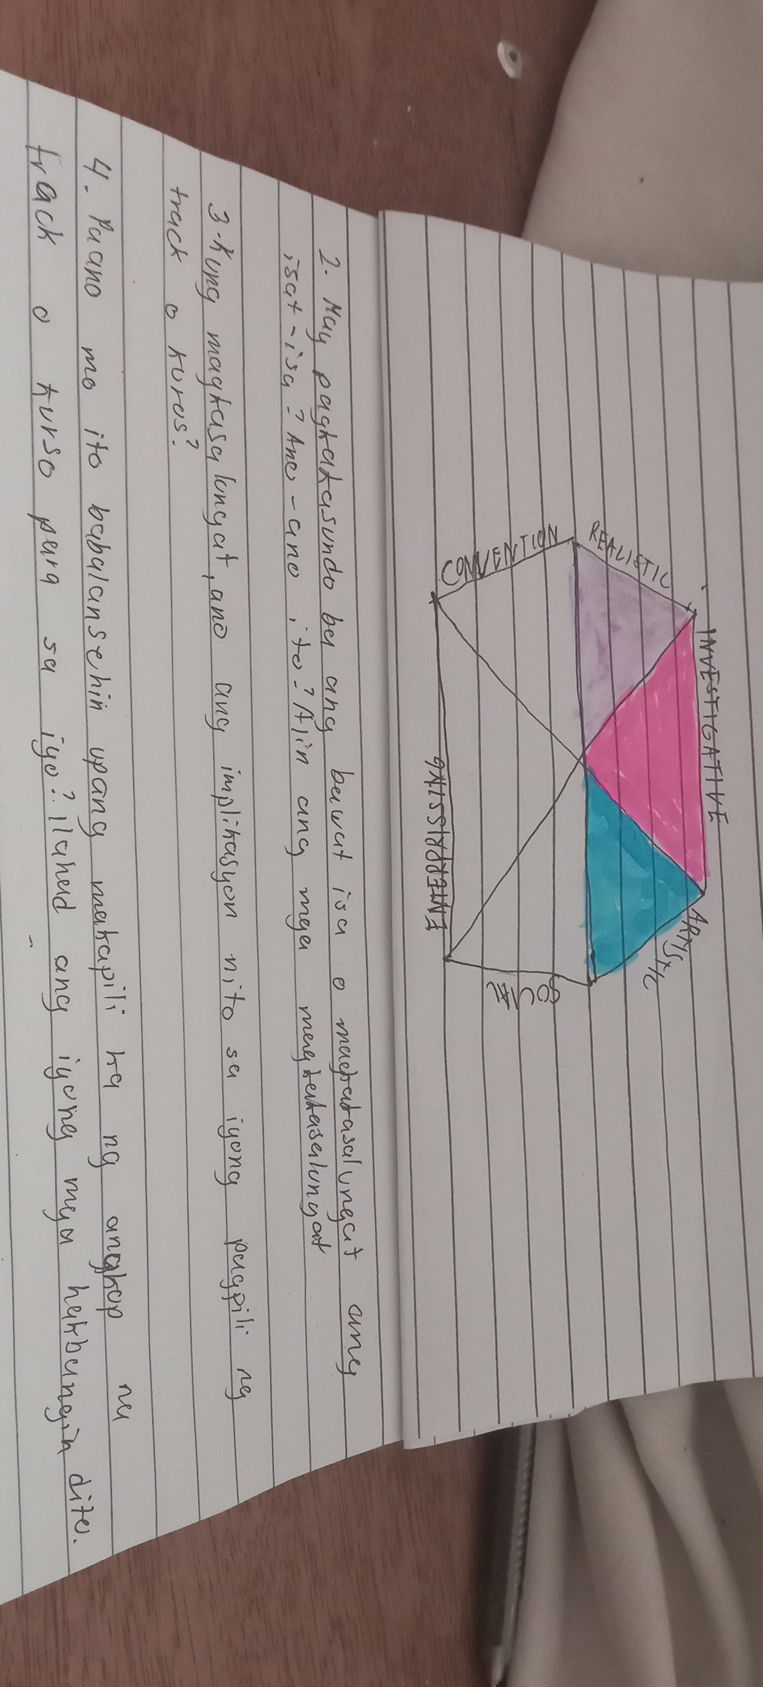 INVESTIGATIVE
REALISTIC
ARTISTIC
CONVENTION
SOCAL
ENTERPRISSING
2. May pagkakasundo ba ang bawat isa o magkakasalungat ang
isat-isa? Ano-ano ito? Alin ang mga magkakasalungat
3. Kung magkasalungat, ano ang implikasyon nito sa iyong pagpili ng
track o kuros?
4. Paano mo ito babalansehin upang makapili ka ng angkop na
track o kurso para sa iyo? ilahad ang iyong mga hakbangin dito.